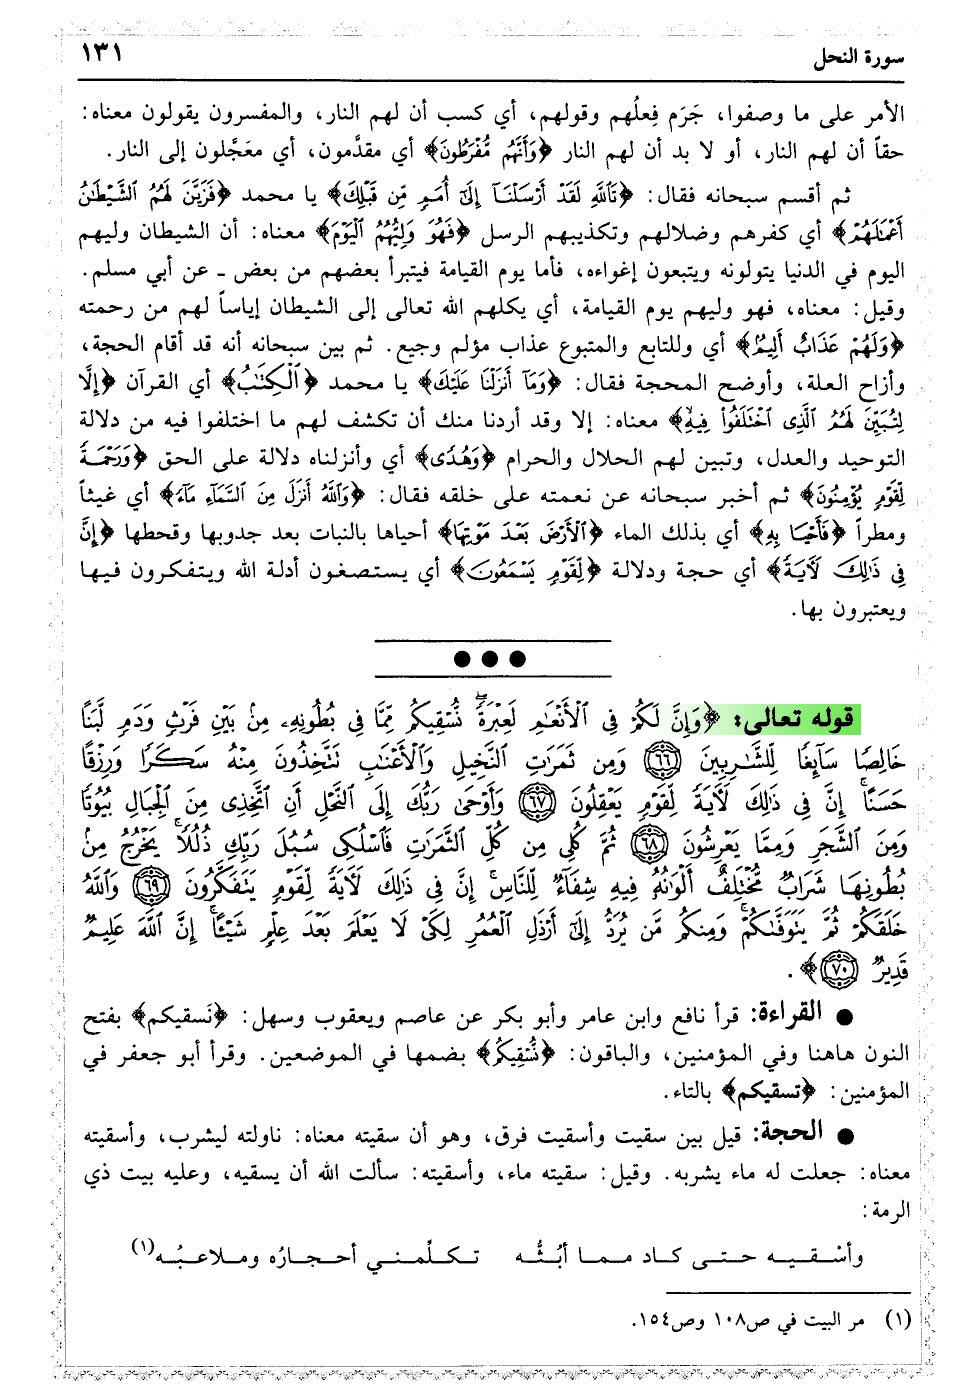 سورة النحل
١٣١
الأمر على ما وصفوا، جَرَم فِعلُهم وقولهم، أي كسب أن لهم النار، والمفسرون يقولون معناه:
حقاً أن لهم النار، أو لا بد أن لهم النار ﴿وَأَنَّهُم مُّفْرَطُونَ﴾ أي مقدَّمون، أي معَجَّلون إلى النار.
ثم أقسم سبحانه فقال: ﴿تَاللَّهِ لَقَدْ أَرْسَلْنَا إِلَىٰ أُمَمٍ مِّن قَبْلِكَ﴾ يا محمد ﴿فَزَيَّنَ لَهُمُ الشَّيْطَانُ
أَعْمَالَهُمْ﴾ أي كفرهم وضلالهم وتكذيبهم الرسل ﴿فَهُوَ وَلِيُّهُمُ الْيَوْمَ﴾ معناه: أن الشيطان وليهم
اليوم في الدنيا يتولونه ويتبعون إغواءه، فأما يوم القيامة فيتبرأ بعضهم من بعض - عن أبي مسلم.
وقيل: معناه، فهو وليهم يوم القيامة، أي يكلهم الله تعالى إلى الشيطان إياساً لهم من رحمته
﴿وَلَهُمْ عَذَابٌ أَلِيمٌ﴾ أي وللتابع والمتبوع عذاب مؤلم وجيع. ثم بين سبحانه أنه قد أقام الحجة،
وأزاح العلة، وأوضح المحجة فقال: ﴿وَمَا أَنزَلْنَا عَلَيْكَ﴾ يا محمد ﴿الْكِتَابَ﴾ أي القرآن ﴿إِلَّا
لِتُبَيِّنَ لَهُمُ الَّذِي اخْتَلَفُوا فِيهِ﴾ معناه: إلا وقد أردنا منك أن تكشف لهم ما اختلفوا فيه من دلالة
التوحيد والعدل، وتبين لهم الحلال والحرام ﴿وَهُدًى﴾ أي وأنزلناه دلالة على الحق ﴿وَرَحْمَةً
لِّقَوْمٍ يُؤْمِنُونَ﴾ ثم أخبر سبحانه عن نعمته على خلقه فقال: ﴿وَاللَّهُ أَنزَلَ مِنَ السَّمَاءِ مَاءً﴾ أي غيثاً
ومطراً ﴿فَأَحْيَا بِهِ﴾ أي بذلك الماء ﴿الْأَرْضَ بَعْدَ مَوْتِهَا﴾ أحياها بالنبات بعد جدوبها وقحطها ﴿إِنَّ
فِي ذَٰلِكَ لَآيَةً﴾ أي حجة ودلالة ﴿لِّقَوْمٍ يَسْمَعُونَ﴾ أي يستصغون أدلة الله ويتفكرون فيها
ويعتبرون بها.
قوله تعالى: ﴿وَإِنَّ لَكُمْ فِي الْأَنْعَامِ لَعِبْرَةً ۖ نُّسْقِيكُم مِّمَّا فِي بُطُونِهِ مِن بَيْنِ فَرْثٍ وَدَمٍ لَّبَنًا
خَالِصًا سَائِغًا لِّلشَّارِبِينَ ٦٦ وَمِن ثَمَرَاتِ النَّخِيلِ وَالْأَعْنَابِ تَتَّخِذُونَ مِنْهُ سَكَرًا وَرِزْقًا
حَسَنًا ۗ إِنَّ فِي ذَٰلِكَ لَآيَةً لِّقَوْمٍ يَعْقِلُونَ ٦٧ وَأَوْحَىٰ رَبُّكَ إِلَى النَّحْلِ أَنِ اتَّخِذِي مِنَ الْجِبَالِ بُيُوتًا
وَمِنَ الشَّجَرِ وَمِمَّا يَعْرِشُونَ ٦٨ ثُمَّ كُلِي مِن كُلِّ الثَّمَرَاتِ فَاسْلُكِي سُبُلَ رَبِّكِ ذُلُلًا ۚ يَخْرُجُ مِن
بُطُونِهَا شَرَابٌ مُّخْتَلِفٌ أَلْوَانُهُ فِيهِ شِفَاءٌ لِّلنَّاسِ ۗ إِنَّ فِي ذَٰلِكَ لَآيَةً لِّقَوْمٍ يَتَفَكَّرُونَ ٦٩ وَاللَّهُ
خَلَقَكُمْ ثُمَّ يَتَوَفَّاكُمْ ۚ وَمِنكُم مَّن يُرَدُّ إِلَىٰ أَرْذَلِ الْعُمُرِ لِكَيْ لَا يَعْلَمَ بَعْدَ عِلْمٍ شَيْئًا ۚ إِنَّ اللَّهَ عَلِيمٌ
قَدِيرٌ ٧٠﴾.
● القراءة: قرأ نافع وابن عامر وأبو بكر عن عاصم ويعقوب وسهل: ﴿نَسقيكم﴾ بفتح
النون هاهنا وفي المؤمنين، والباقون: ﴿نُّسْقِيكُم﴾ بضمها في الموضعين. وقرأ أبو جعفر في
المؤمنين: ﴿تسقيكم﴾ بالتاء.
● الحجة: قيل بين سقيت وأسقيت فرق، وهو أن سقيته معناه: ناولته ليشرب، وأسقيته
معناه: جعلت له ماء يشربه. وقيل: سقيته ماء، وأسقيته: سألت الله أن يسقيه، وعليه بيت ذي
الرمة:
وأسْقيه حتى كاد مما أبُثُّه تكلِّمني أحجارُه وملاعبُه(١)
(١) مر البيت في ص١٠٨ وص١٥٤.